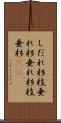 しだれ杉枝垂
れ杉垂れ杉枝
垂杉